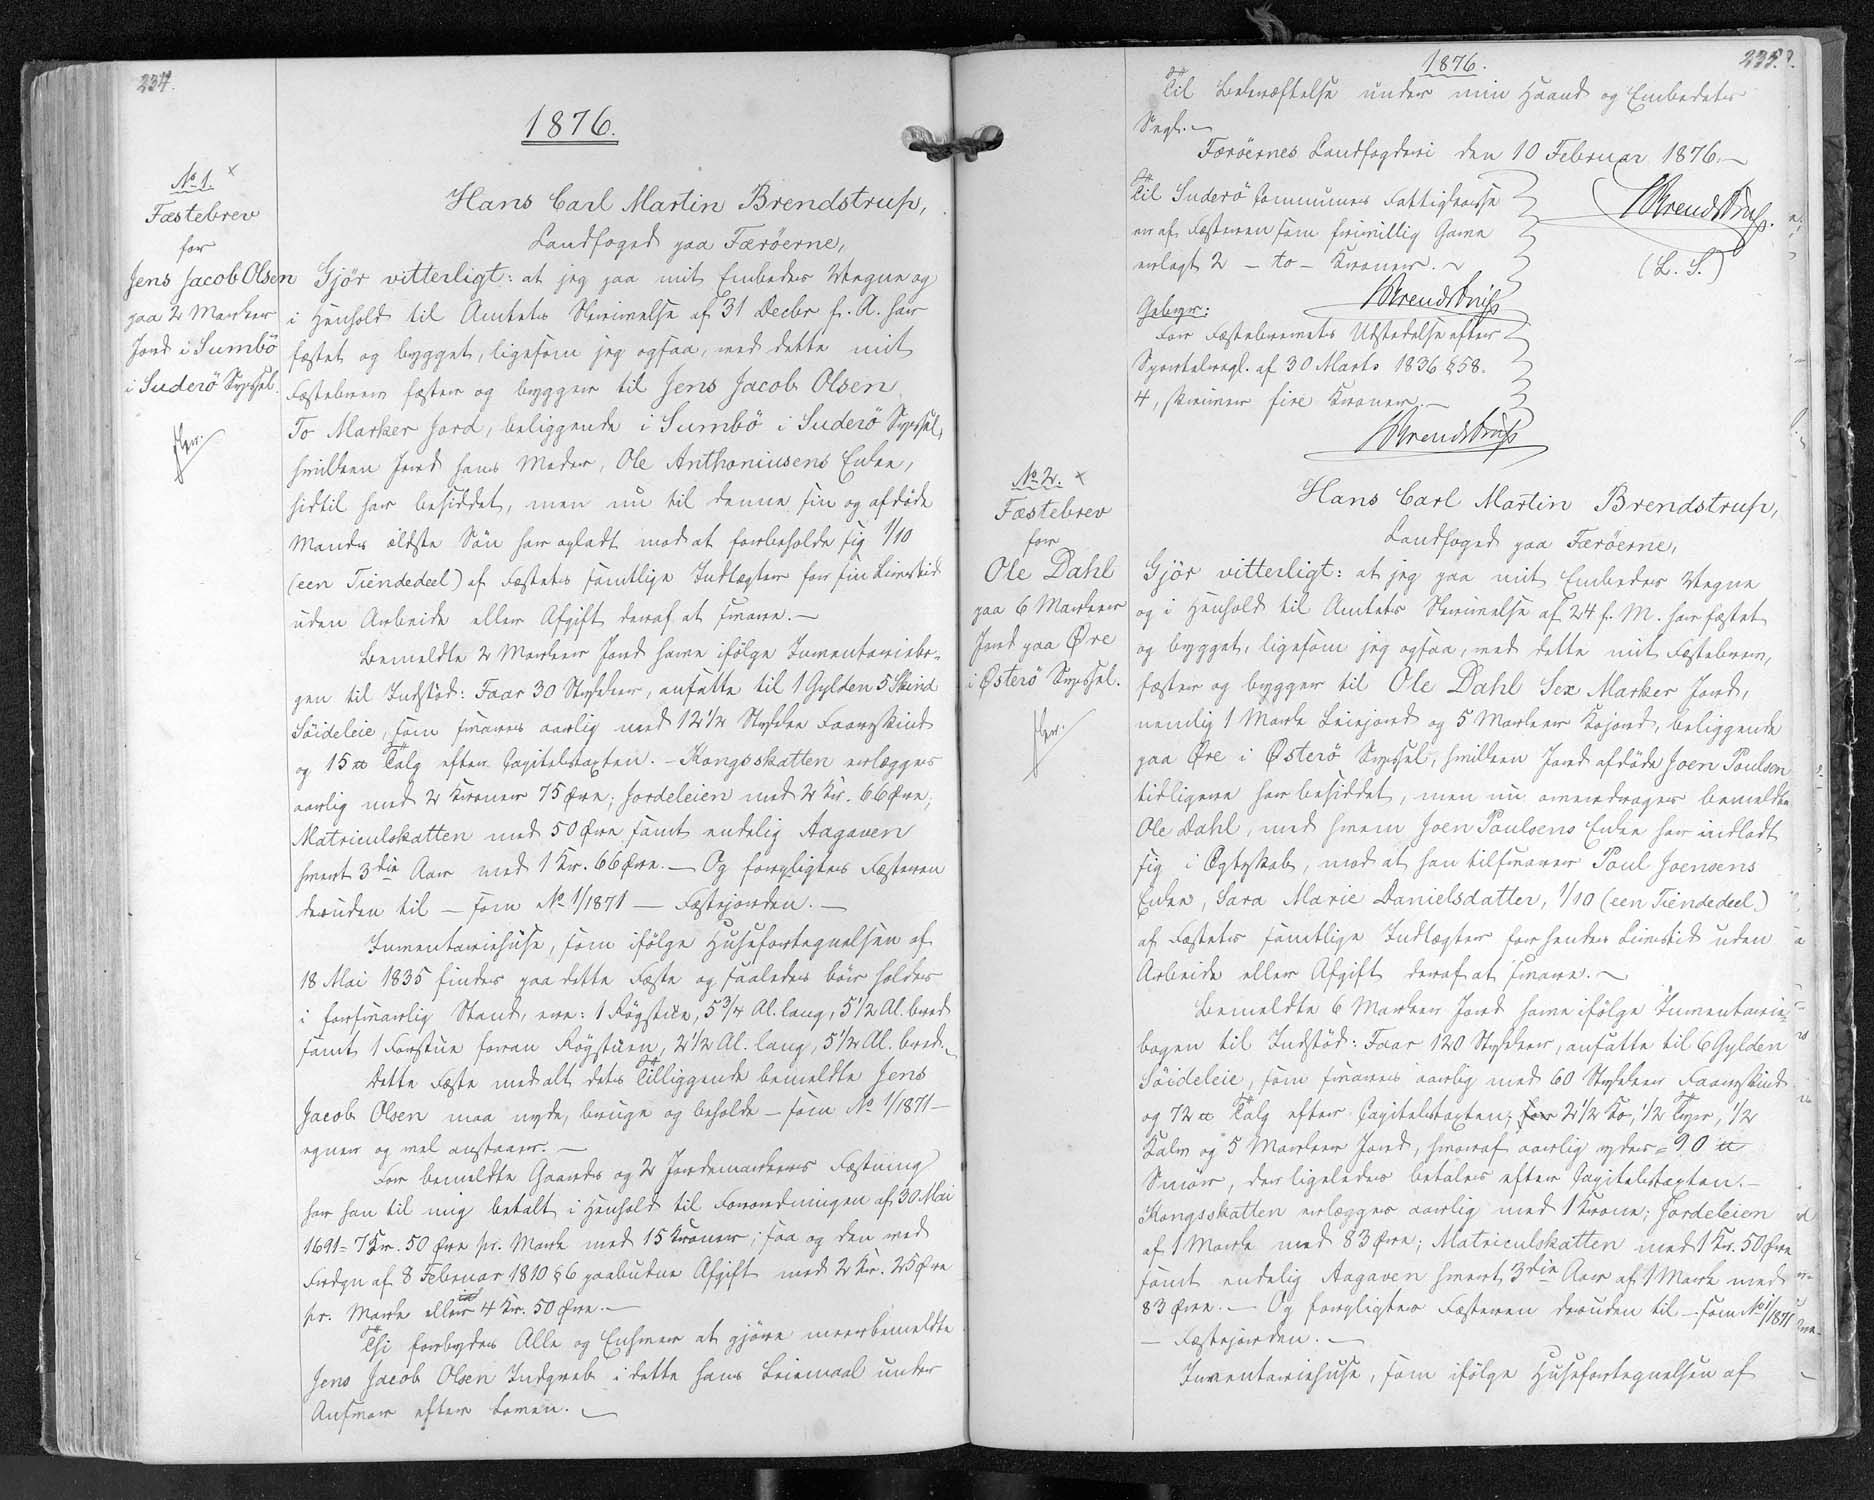 234.
1876.
No 1. x
Fæstebrev
for
Jens Jacob Olsen
paa 2 Marker
Jord i Sumbö
i Suderö Syssel.
Hans Carl Martin Brendstrup,
Landfoged paa Færöerne,
Gjör vitterligt: at jeg paa mit Embedes Vegne og
i Henhold til Amtets Skrivelse af 31 Decbr f. A. har
fæstet og bygget, ligesom jeg ogsaa, med dette mit
Fæstebrev fæster og bygger til Jens Jacob Olsen
To Marker Jord, beliggende i Sumbö i Suderö Syssel,
hvilken Jord hans Moder, Ole Anthoniusens Enke,
hidtil har besiddet, men nu til denne sin og afdöde
Mands ældste Sön har opladt mod at forbeholde sig 1/10
(een Tiendedeel) af Fæstets samtlige Indtægter for sin Livstid
uden Arbeide eller Afgift deraf at svare. —
Bemeldte 2 Marker Jord have ifölge Inventariebo-
gen til Indstöd: Faar 30 Stykker, ansatte til 1 Gylden 5 Skind
Söideleie, som svares aarlig med 12 1/2 Stykke Faareskind
og 15 ℔ Talg efter Capitelstaxten. – Kongsskatten erlægges
aarlig med 2 Kroner 75 Øre; Jordeleien med 2 Kr. 66 Øre;
Matriculskatten med 50 Øre samt endelig Aagaven
hvert 3die Aar med 1 Kr. 66 Øre. — Og forpligtes Fæsteren
desuden til — som No 1/1871 — Fæstejorden. —
Inventariehuse, som ifölge Husefortegnelsen af
18 Mai 1835 findes paa dette Fæste og saaledes bör holdes
i forsvarlig Stand, ere: 1 Rögstue, 5 3/4 Al. lang, 5 1/2 Al. bred
samt 1 Forstue foran Rögstuen, 2 1/2 Al. lang, 5 1/2 Al. bred. –
Dette Fæste med alt dets Tilliggende bemeldte Jens
Jacob Olsen maa nyde, bruge og beholde — som No 1/1871 —
egner og vel anstaaer. —
For bemeldte Gaards og 2 Jordemarkers Fæstning
har han til mig betalt i Henhold til Forordningen af 30 Mai
1691 = 7 Kr. 50 Øre pr. Mark med 15 Kroner; saa og den ved
Frdgn af 8 Februar 1810 § 6 paabudne Afgift med 2 Kr. 25 Øre
pr. Mark eller 4 Kr. 50 Øre. —
Thi forbydes Alle og Enhver at gjöre meerbemeldte
Jens Jacob Olsen Indgreb i dette hans Leiemaal under
Ansvar efter Loven. —
1876.
235.
Til Bekræftelse under min Haand og Embedets
Segl. —
Færöernes Landfogderi den 10 Februar 1876. —
Brendstrup.
(L. S.)
Til Suderö Communes Fattigkasse
er af Fæsteren som frivillig Gave
erlagt 2 – to – Kroner. –
Brendstrup
Gebyr:
For Fæstebrevets Udstedelse efter
Sportelregl. af 30 Marts 1836 § 58.
4, skriver fire Kroner. —
Brendstrup
No 2. x
Fæstebrev
for
Ole Dahl
paa 6 Marker
Jord paa Øre
i Østerö Syssel.
Hans Carl Martin Brendstrup,
Landfoged paa Færöerne,
Gjör vitterligt: at jeg paa mit Embedes Vegne
og i Henhold til Amtets Skrivelse af 24 f. M. har fæstet
og bygget, ligesom jeg ogsaa, med dette mit Fæstebrev,
fæster og bygger til Ole Dahl Sex Marker Jord,
nemlig 1 Mark Leiejord og 5 Marker Kojord, beliggende
paa Øre i Østerö Syssel, hvilken Jord afdöde Joen Poulsen
tidligere har besiddet, men nu overdrages bemeldte
Ole Dahl, med hvem Joen Poulsens Enke har indladt
sig i Ægteskab, mod at han tilsvarer Poul Joensens
Enke, Sara Marie Danielsdatter, 1/10 (een Tiendedeel)
af Fæstets samtlige Indtægter for hendes Livstid uden
Arbeide eller Afgift deraf at svare. —
Bemeldte 6 Marker Jord have ifölge Inventarie-
bogen til Indstöd: Faar 120 Stykker, ansatte til 6 Gylden
Söideleie, som svares aarlig med 60 Stykker Faareskind
og 72 ℔ Talg efter Capitelstaxten; 2 1/2 Ko, 1/2 Tyr, 1/2
Kalv og 5 Marker Jord, hvoraf aarlig ydes = 90 ℔
Smör, der ligeledes betales efter Capitelstaxten. –
Kongsskatten erlægges aarlig med 1 Krone; Jordeleien
af 1 Mark med 83 Øre; Matriculskatten med 1 Kr. 50 Øre
samt endelig Aagaven hvert 3die Aar af 1 Mark med
83 Øre. — Og forpligtes Fæsteren desuden til — som No 1/1871
— Fæstejorden. —
Inventariehuse, som ifölge Husefortegnelsen af